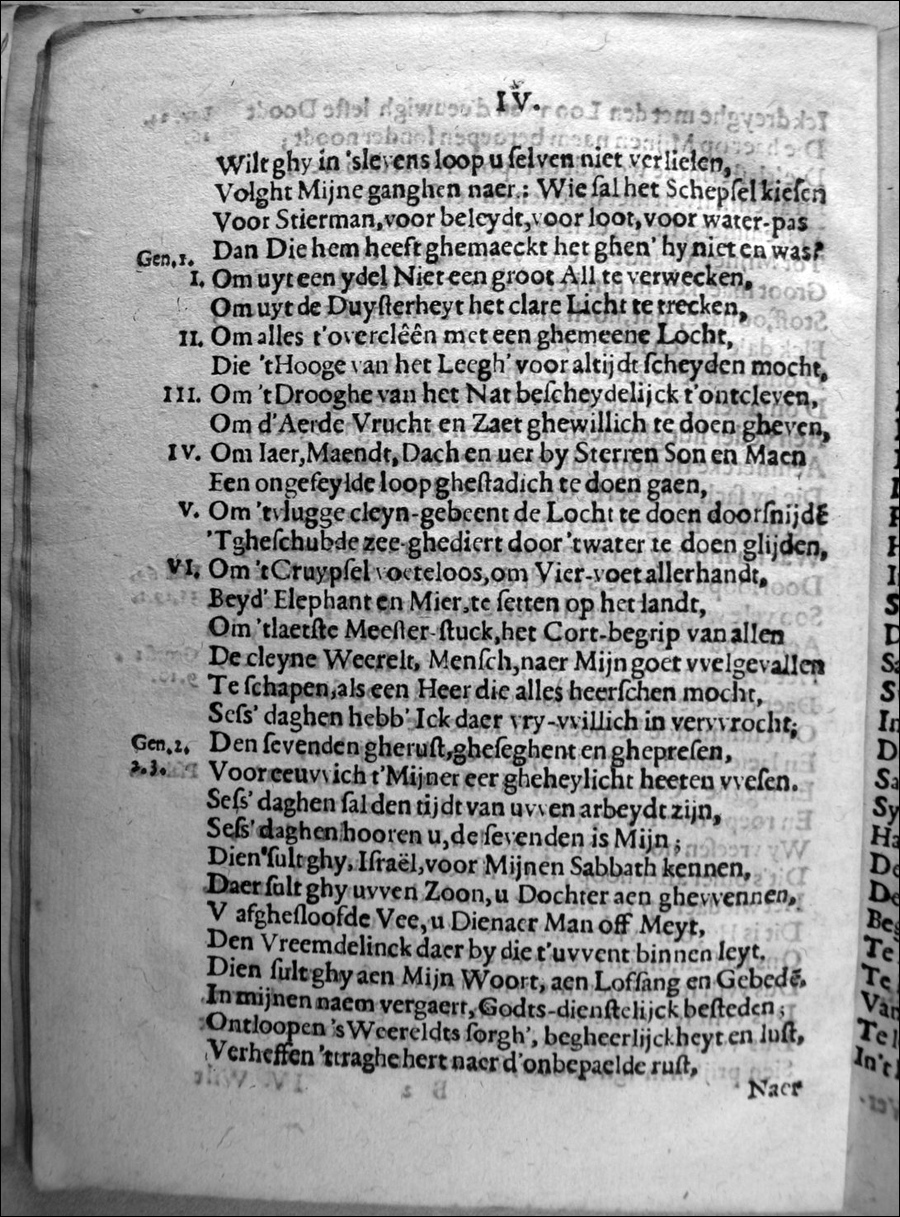 IV.
Wilt ghy in 'slevens loop u ſelven niet verlieſen,
Volght Mijne ganghen naer.: Wie ſal het Schepſel kieſen
Voor Stierman, voor beleydt, voor loot, voor water-pas
Gen. 1. Dan Die hem heeft ghemaeckt het ghen' hy niet en was?
I. Om uyt een ydel Niet een groot All te verwecken,
Om uyt de Duyſterheyt het clare Licht te trecken,
II. Om alles t'overclêên met een ghemeene Locht,
Die 'tHooge van het Leegh' voor altijdt ſcheyden mocht,
III. Om 'tDrooghe van het Nat beſcheydelijck t'ontcleven,
Om d'Aerde Vrucht en Zaet ghewillich te doen gheven,
IV. Om Iaer, Maendt, Dach en uer by Sterren Son en Maen
Een ongefeylde loop gheſtadich te doen gaen,
V. Om 'tvlugge cleyn-gebeent de Locht te doen doorſnijdē
'Tgheſchubde zee-ghediert door 'twater te doen glijden,
VI. Om 'tCruypſel voeteloos, om Vier-voet allerhandt,
Beyd' Elephant en Mier, te ſetten op het landt,
Om 'tlaetſte Meeſter-ſtuck, het Cort-begrip van allen
De cleyne Weerelt, Menſch, naer Mijn goet vvelgevallen
Te ſchapen, als een Heer die alles heerſchen mocht,
Seſs' daghen hebb' Ick daer vry-vvillich in vervvrocht;
Gen. 2. Den ſevenden gheruſt, gheſeghent en ghepreſen,
2. 3. Voor eeuvvich t'Mijner eer gheheylicht heeten vveſen.
Seſs' daghen ſal den tijdt van uvven arbeydt zijn,
Seſs' daghen hooren u, de ſevenden is Mijn;
Dien ſult ghy, Iſraël, voor Mijnen Sabbath kennen,
Daer ſult ghy uvven Zoon, u Dochter aen ghevvennen,
V afgheſloofde Vee, u Dienaer Man off Meyt,
Den Vreemdelinck daer by die t'uvvent binnen leyt.
Dien ſult ghy aen Mijn Woort, aen Lofſang en Gebedē,
In mijnen naem vergaert, Godts-dienſtelijck beſteden;
Ontloopen 's Weereldts ſorgh', begheerlijckheyt en luſt,
Verheffen 'ttraghe hert naer d'onbepaelde ruſt,
Naer